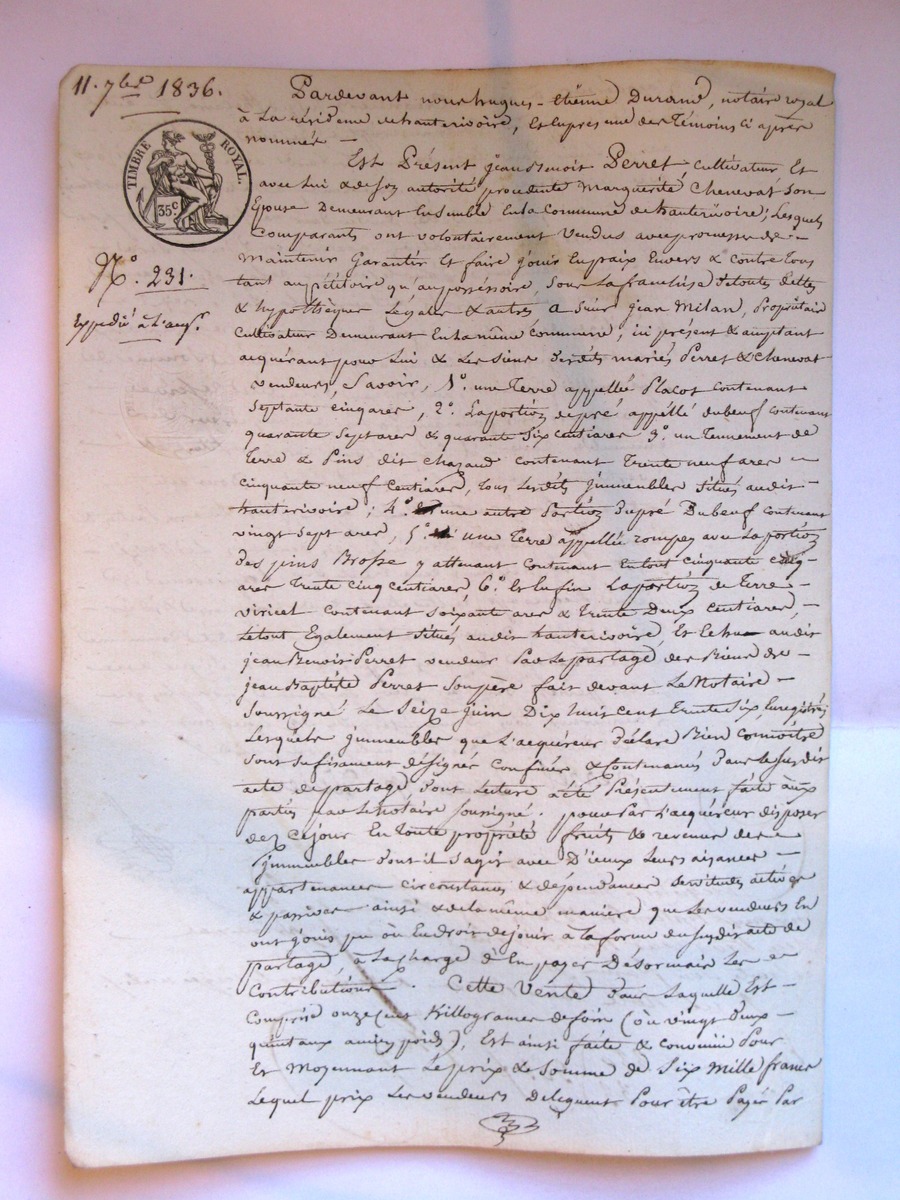 11. 7bre 1836.
Pardevant nous hugues-Etienne Durand, notaire royal
à La résidence de hauterivoire, Et En présence des Témoins ci après
nommés —
TIMBRE ROYAL.
35c
Est Présent jean Benoit Perret Cultivateur Et
avec Lui & de son autorité procédente Marguerite Chenevat son
Epouse Demeurant Ensemble En La Commune de hauterivoire; Lesquels
Comparants ont volontairement Vendus avec promesse de —
No. 231.
Maintenir Garantir Et faire jouir En paix Envers & contre Tous
tant au pétitoire qu'au possessoire, sous La franchise de toutes dettes
Expédié à l'acqr.
& hypothèques Légales & autres a Sieur jean Milan, Propriétaire
Cultivateur Demeurant En la même Commune, ici présent & acceptant
acquérant pour Lui & Les Siens Desdits mariés Perret & Chenevat
vendeurs, Savoir, 1o. une Terre appellée Placot contenant
Septante cinq ares, 2o. La portion de pré appellé dubeuf contenant
quarante Sept ares & quarante Six Centiares 3o. un Tennement de
Terre & Pins dit Chazaud contenant Trente neuf ares —
Cinquante neuf Centiares, Tous Lesdits Immeubles Situés audit
hauterivoire; 4o. une autre Portion Dupré Dubeuf contenant
vingt Sept ares, 5o. une Terre appellée rompey avec La portion
des pins Brosse y attenant Contenant En tout Cinquante cinq
ares Trente Cinq Centiares, 6o. Et Enfin La portion de Terre —
viricel Contenant Soixante ares & Trente Deux Centiares, —
Le tout Egalement Situés audit hauterivoire, Et Echus audit
jean Benoit Perret vendeur Par Le partage des Biens de —
jean Baptiste Perret Son père fait devant Le Notaire —
Soussigné Le Seize juin Dix huit Cent Trente Six, Enregistré,
Lesquels Immeubles que L'acquéreur Déclare Bien Connoitre
Sont Sufisament désignés Confinés & Contenancés Dans Le Susdit
acte de partage, dont Lecture a été Présentement faite aux
parties par Le Notaire Soussigné. pour Par L'acquéreur disposer
dez ce jour En Toute propriété fruits & revenus des —
Immeubles dont il S'agit avec D'iceux Leurs aisances —
appartenances circonstances & dépendances Servitudes actives
& passives ainsi & de la même manière que Les vendeurs En
ont jouis pu ou En droit de jouir à la forme du Susdit acte de
partage, à La charge d'En payer Désormais Les —
Contributions. Cette Vente Dans Laquelle Est —
Comprise onze Cent Killogrames de foin (ou vingt Deux —
quintaux ancien poids), Est ainsi faite & Convenue Pour
Et Moyennant Le prix & Somme de Six Mille francs
Lequel prix Les vendeurs Délèguent Pour être Payé Par